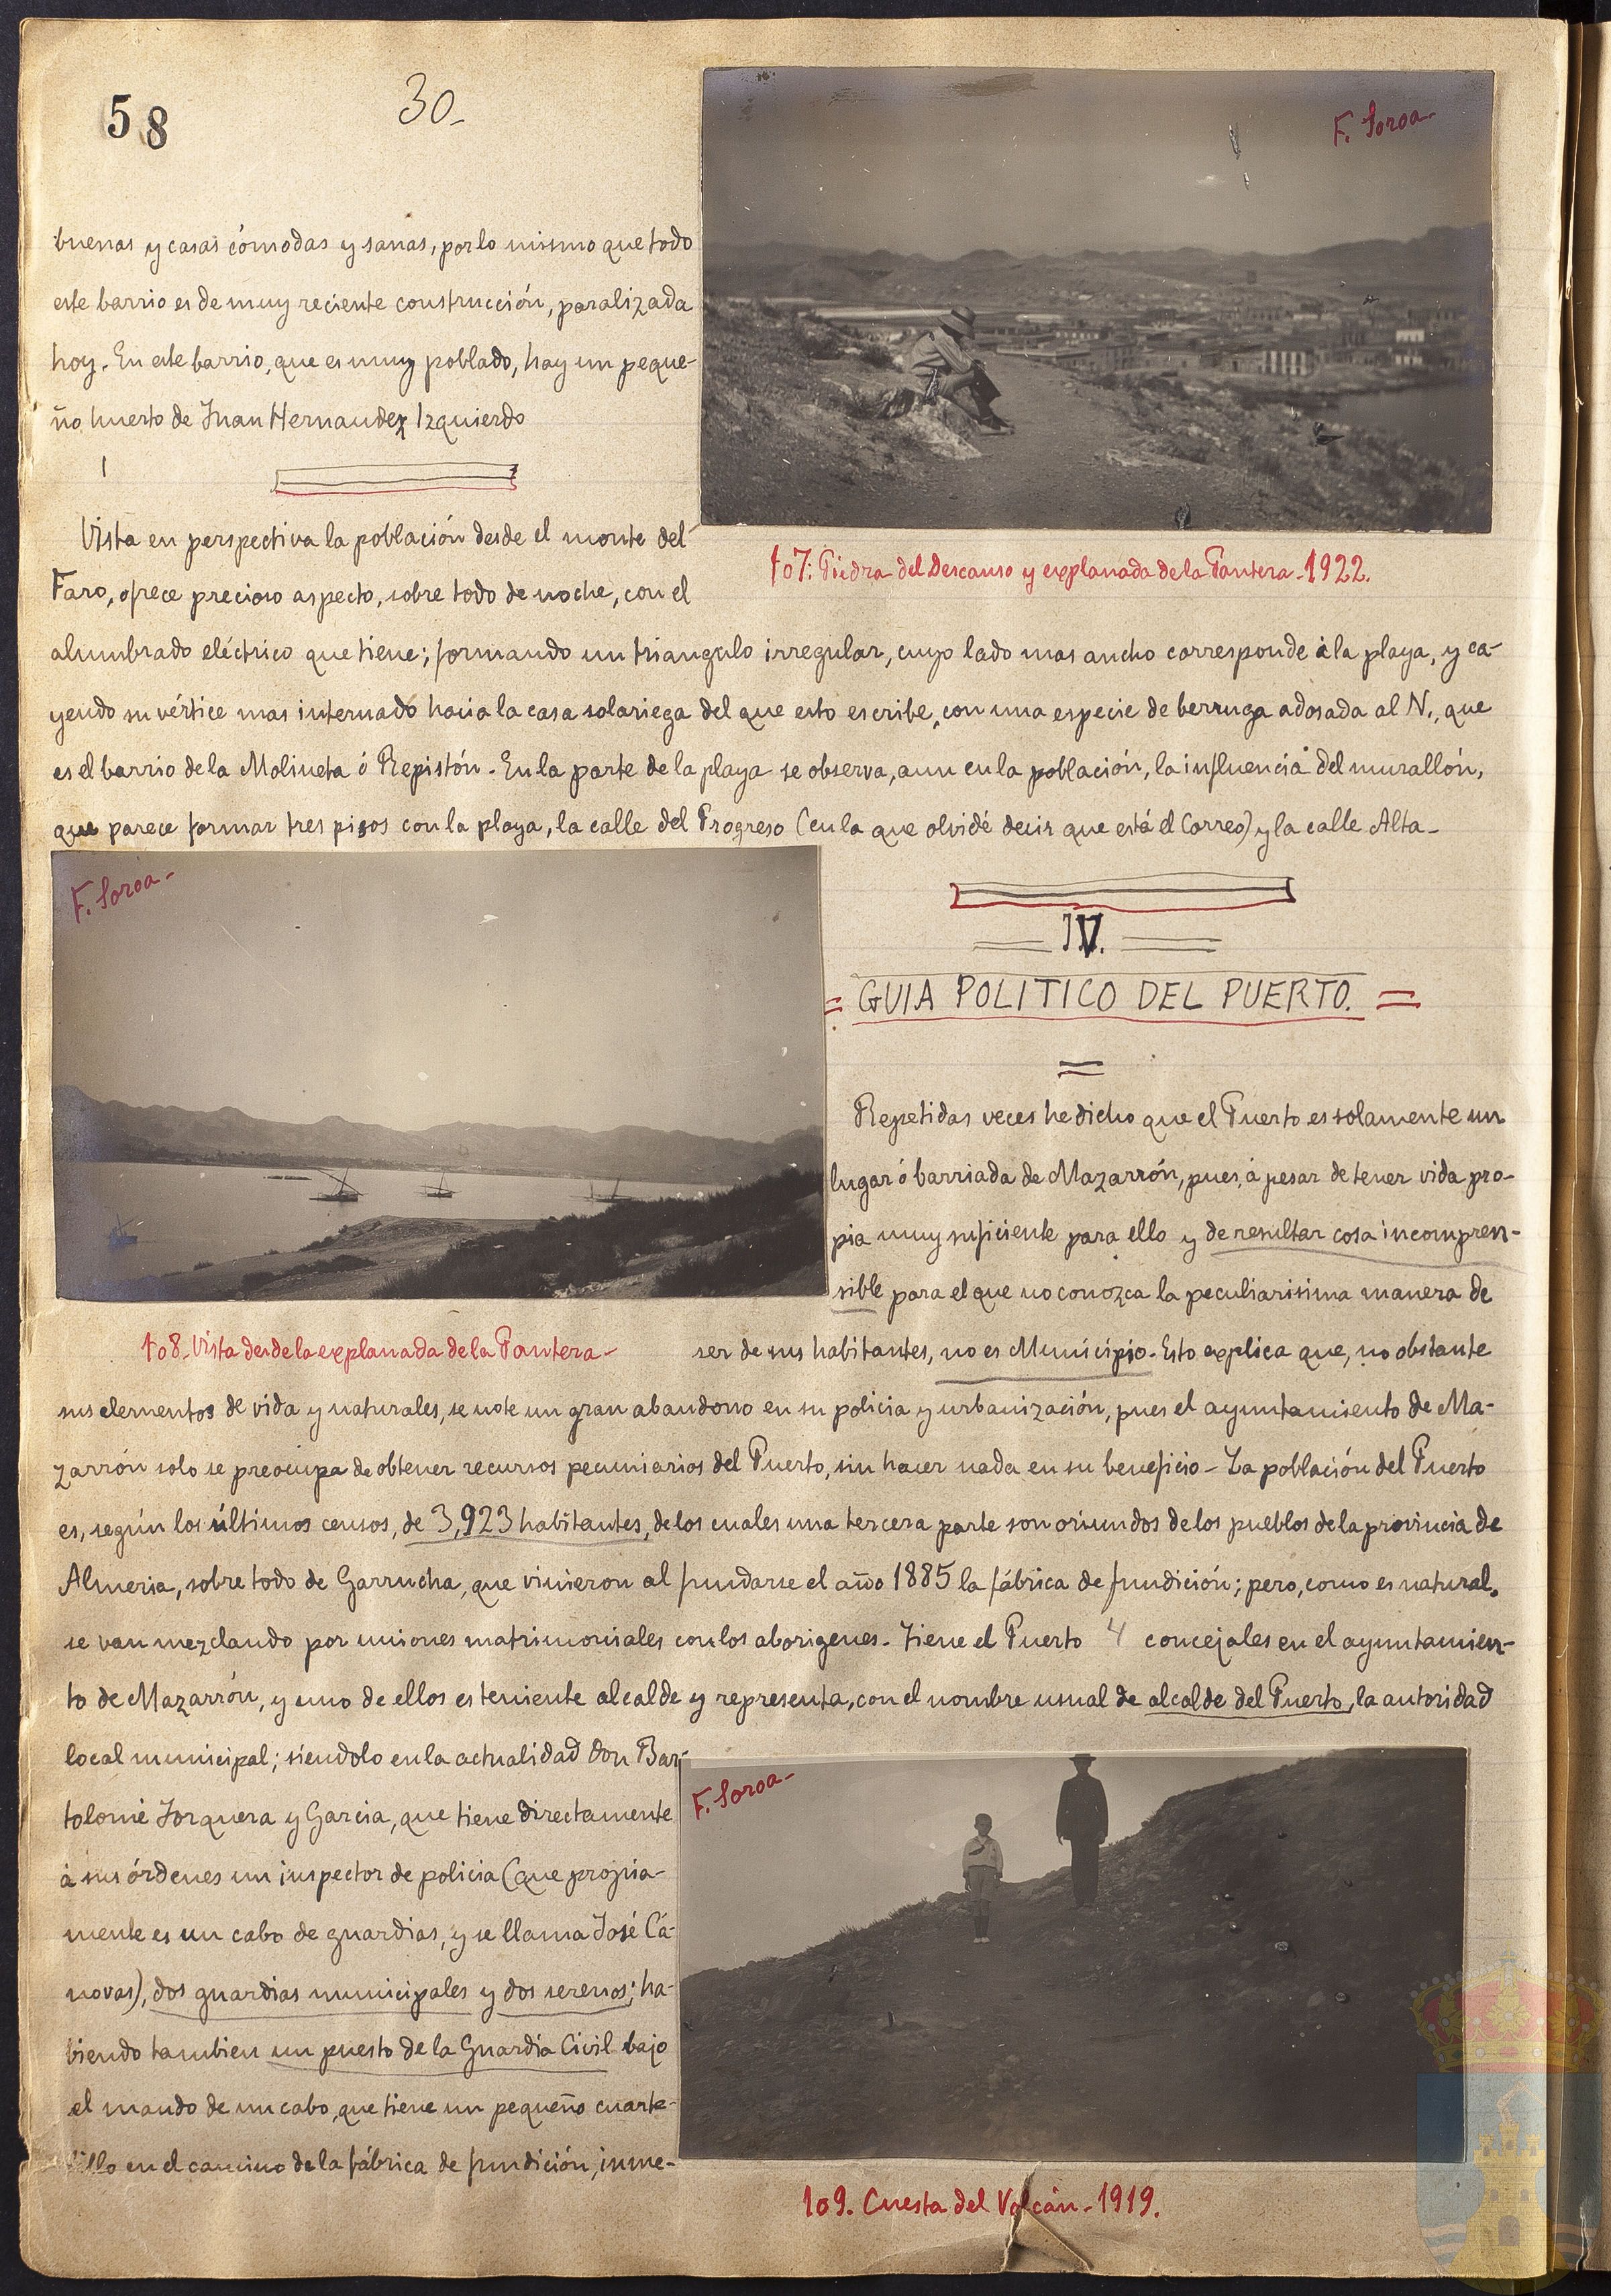 58
30.
F. Soroa-
buenas y casas cómodas y sanas, por lo mismo que todo
este barrio es de muy reciente construcción, paralizada
hoy. En este barrio, que es muy poblado, hay un peque-
ño huerto de Juan Hernandez Izquierdo
Vista en perspectiva la población desde el monte del
Faro, ofrece precioso aspecto, sobre todo de noche, con el
107: Piedra del Descanso y explanada de la Pantera-1922.
alumbrado eléctrico que tiene; formando un triangulo irregular, cuyo lado mas ancho corresponde á la playa, y ca-
yendo su vértice mas internado hacia la casa solariega del que esto escribe, con una especie de berruga adosada al N., que
es el barrio de la Molineta ó Repistón. En la parte de la playa se observa, aun en la población, la influencia del murallón,
que parece formar tres pisos con la playa, la calle del Progreso (en la que olvidé decir que está el Correo) y la calle Alta-
F. Soroa-
IV.
= GUIA POLITICO DEL PUERTO. =
Repetidas veces he dicho que el Puerto es solamente un
lugar ó barriada de Mazarrón, pues, á pesar de tener vida pro-
pia muy suficiente para ello y de resultar cosa incompren-
sible para el que no conozca la peculiarisima manera de
108. Vista desde la explanada de la Pantera-
ser de sus habitantes, no es Municipio. Esto explica que, no obstante
sus elementos de vida y naturales, se note un gran abandono en su policia y urbanización, pues el ayuntamiento de Ma-
zarrón solo se preocupa de obtener recursos pecuniarios del Puerto, sin hacer nada en su beneficio- La población del Puerto
es, según los últimos censos, de 3,923 habitantes, de los cuales una tercera parte son oriundos de los pueblos de la provincia de
Almeria, sobre todo de Garrucha, que vinieron al fundarse el año 1885 la fábrica de fundición; pero, como es natural,
se van mezclando por uniones matrimoniales con los aborigenes. Tiene el Puerto 4 concejales en el ayuntamien-
to de Mazarrón, y uno de ellos es teniente alcalde y representa, con el nombre usual de alcalde del Puerto, la autoridad
local municipal; siendolo en la actualidad don Bar-
tolomé Jorquera y Garcia, que tiene directamente
á sus órdenes un inspector de policia (que propia-
mente es un cabo de guardias, y se llama José Cá-
novas), dos guardias municipales y dos serenos; ha-
biendo tambien un puesto de la Guardia Civil bajo
el mando de un cabo, que tiene un pequeño cuarte-
lillo en el camino de la fábrica de fundición, inme-
F. Soroa-
109. Cuesta del Volcán-1919.